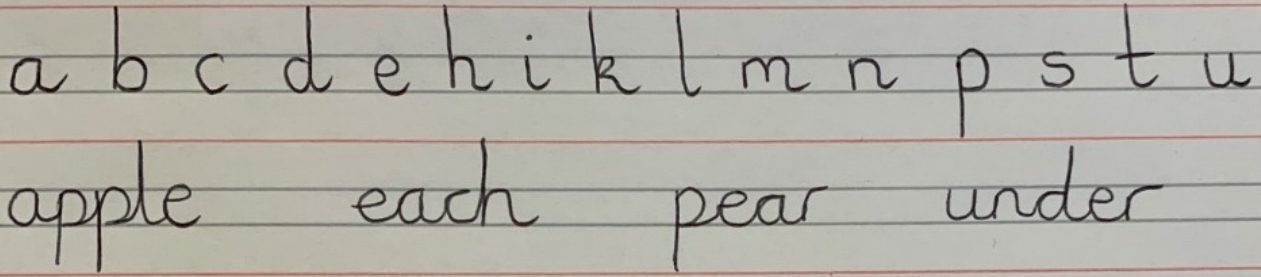 a b c d e h i k l m n p s t u
apple each pear under